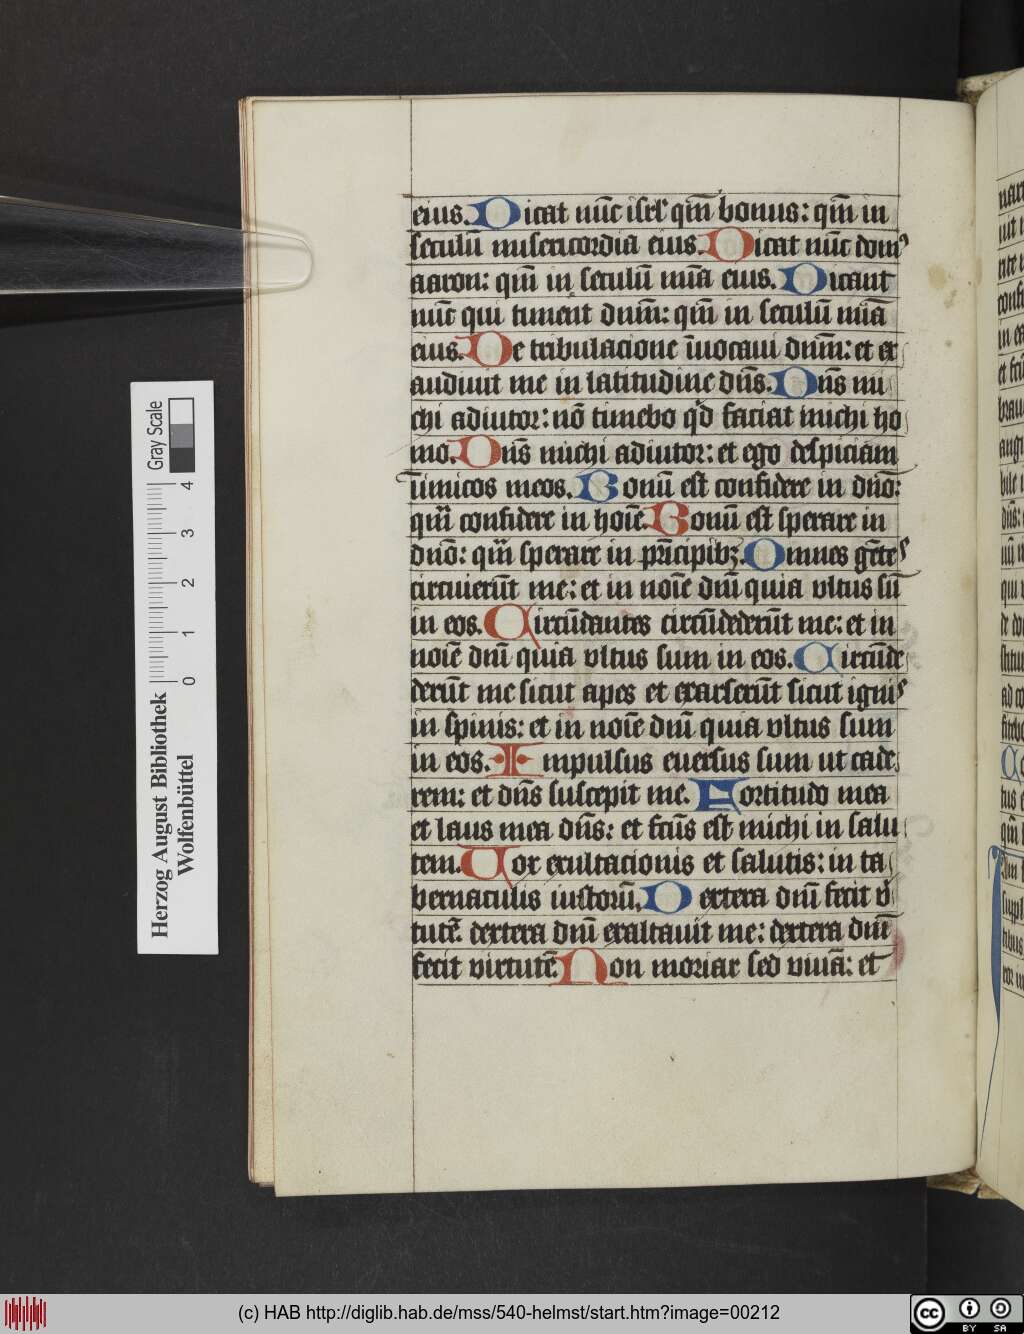 eius. Dicat nūc isrl' qm̄ bonus: qm̄ in
seculū misericordia eius. Dicat nūc dom'
aaron: qm̄ in seculū mīa eius. Dicant
nūc qui timent dnm̄: qm̄ in seculū mīa
eius. De tribulacione īuocaui dnm̄: et ex
audiuit me in latitudine dn̄s. Dn̄s mi
chi adiutor: nō timebo qd̓ faciat michi ho
mo. Dn̄s michi adiutor: et ego despiciam
īimicos meos. Bonū est confidere in dn̄o:
qm̄ confidere in hoīe. Bonū est sperare in
dn̄o: qm̄ sperare in prīcipibꝫ. Omnes gēteˢ
circuierūt me: et in noīe dn̄i quia vltus sū
in eos. Circūdantes circūdederūt me: et in
noīe dn̄i quia vltus sum in eos. Circūde
derūt me sicut apes et exarserūt sicut igniˢ
in spinis: et in noīe dn̄i quia vltus sum
in eos. Impulsus euersus sum ut cade
rem: et dn̄s suscepit me. Fortitudo mea
et laus mea dn̄s: et fcūs est michi in salu
tem. Vox exultacionis et salutis: in ta
bernaculis iustorū. Dextera dn̄i fecit v̓
tutē. dextera dn̄i exaltauit me: dextera dn̄i
fecit virtutē. Non moriar sed viuā: et
Herzog August Bibliothek
Wolfenbüttel
0 1 2 3 4
Gray Scale
(c) HAB http://diglib.hab.de/mss/540-helmst/start.htm?image=00212
cc BY SA